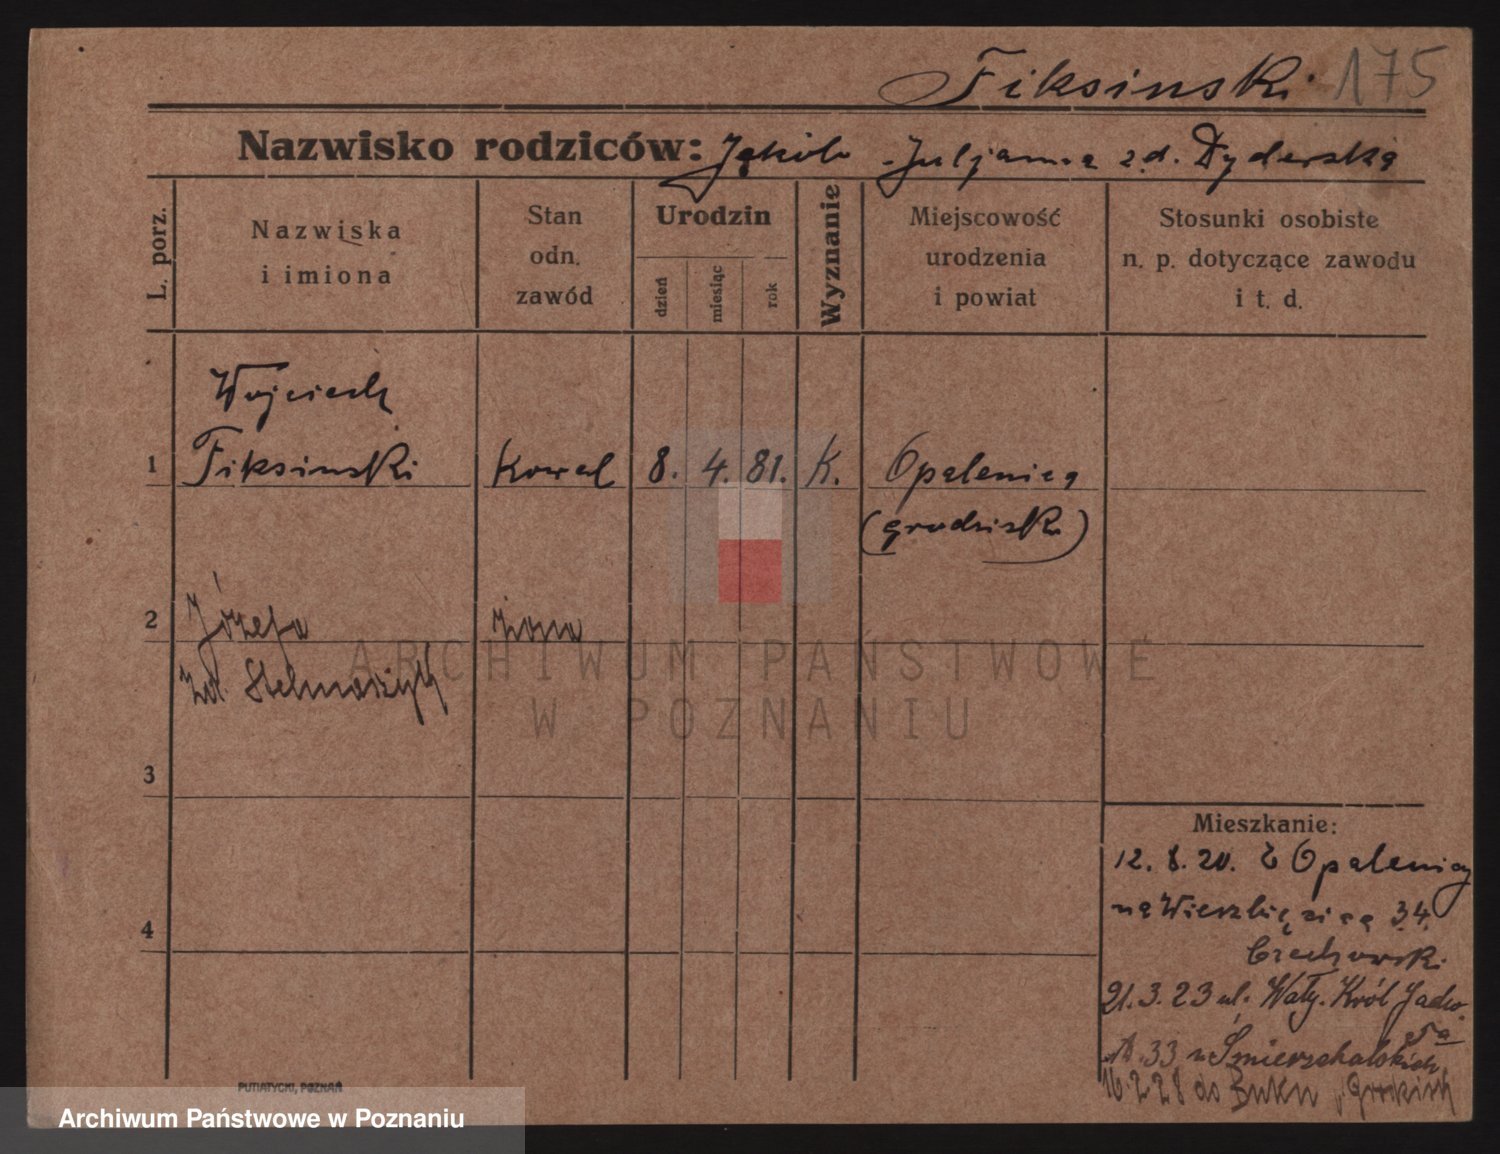 Fiksinski 175
Nazwisko rodziców: Jakób Juljanna z d. Dyderska
L. porz.
Nazwiska
i imiona
Stan
odn.
zawód
Urodzin
dzień
miesiąc
rok
Wyznanie
Miejscowość
urodzenia
i powiat
Stosunki osobiste
n. p. dotyczące zawodu
i t. d.
Wojciech
1 Fiksinski Kowal 8. 4. 81. K. Opalenica
(grodzisk)
2 Józefa żona
zd.
3
4
Mieszkanie:
12. 8. 20. z Opalenicy
na Wierzbięcica 34.
Czechowski
21. 3. 23 ul. Wały. Król Jadw.
33 u
16. 2. 28 do Buku
PUTIATYCKI, POZNAŃ
ARCHIWUM PAŃSTWOWE
W POZNANIU
Archiwum Państwowe w Poznaniu